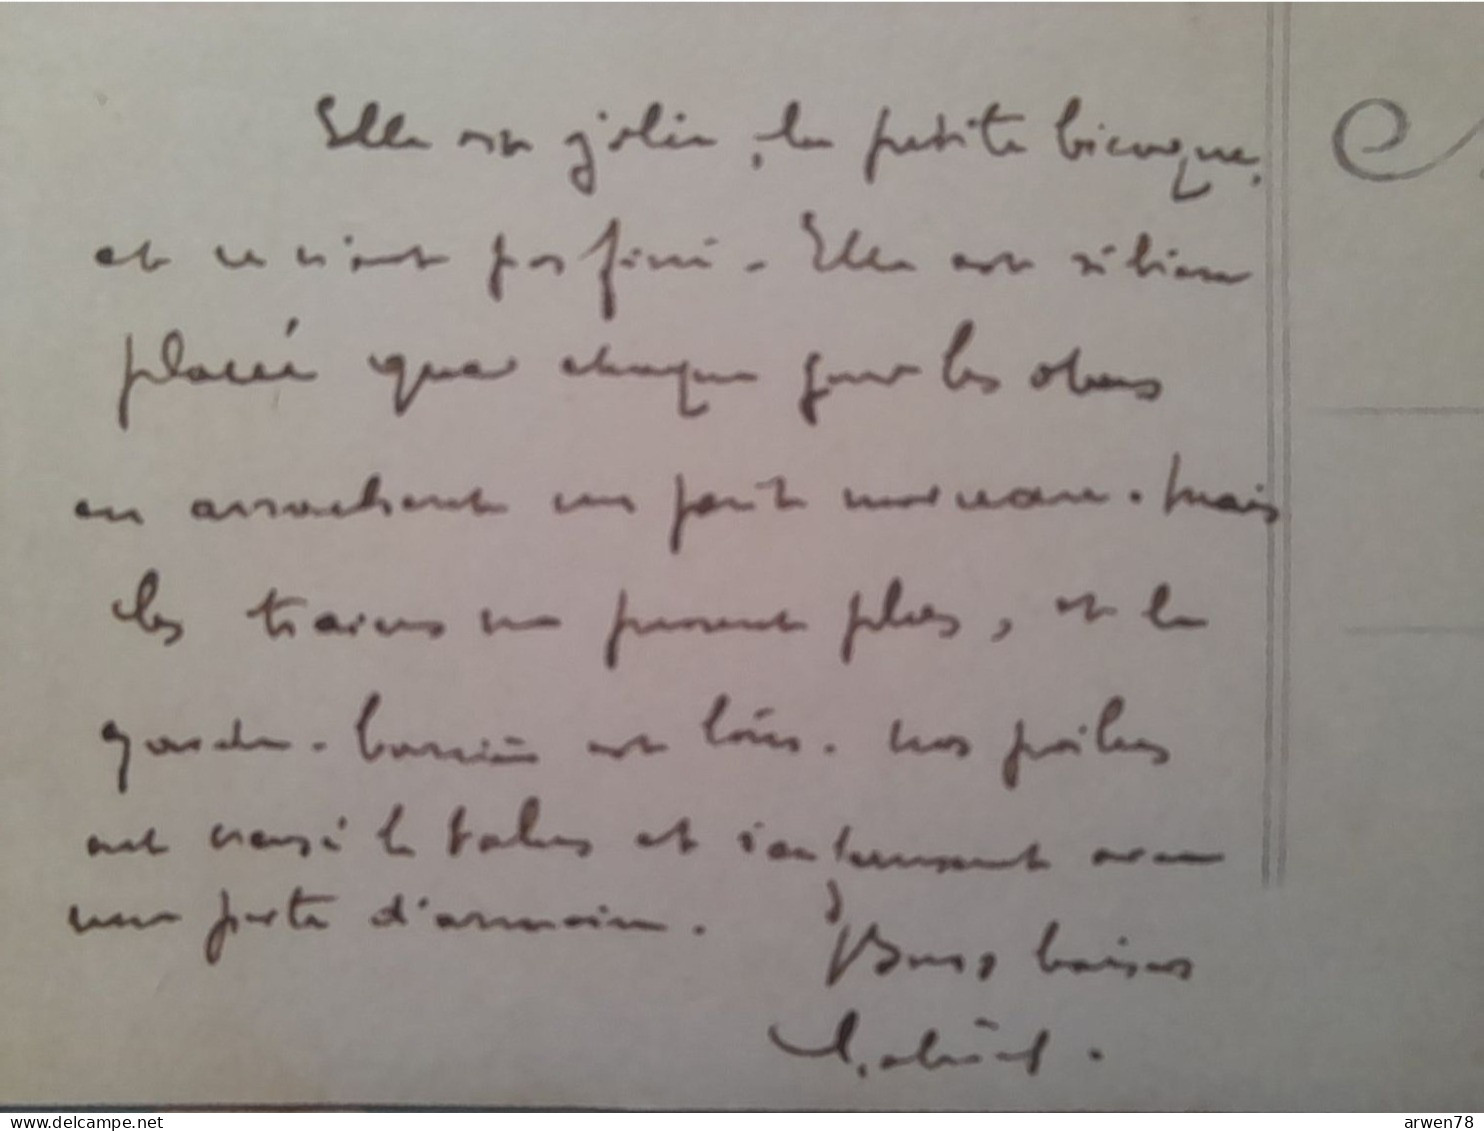 Elle est jolie, la petite bicoque,
et ce n'est pas fini - Elle est si bien
placée que chaque jour les obus
en arrachent un petit morceau. Mais
les trains ne passent plus, et la
garde-barrière est loin. Nos poilus
ont creusé le talus et s'enferment avec
une porte d'armoire.
Bons baisers
arwen78